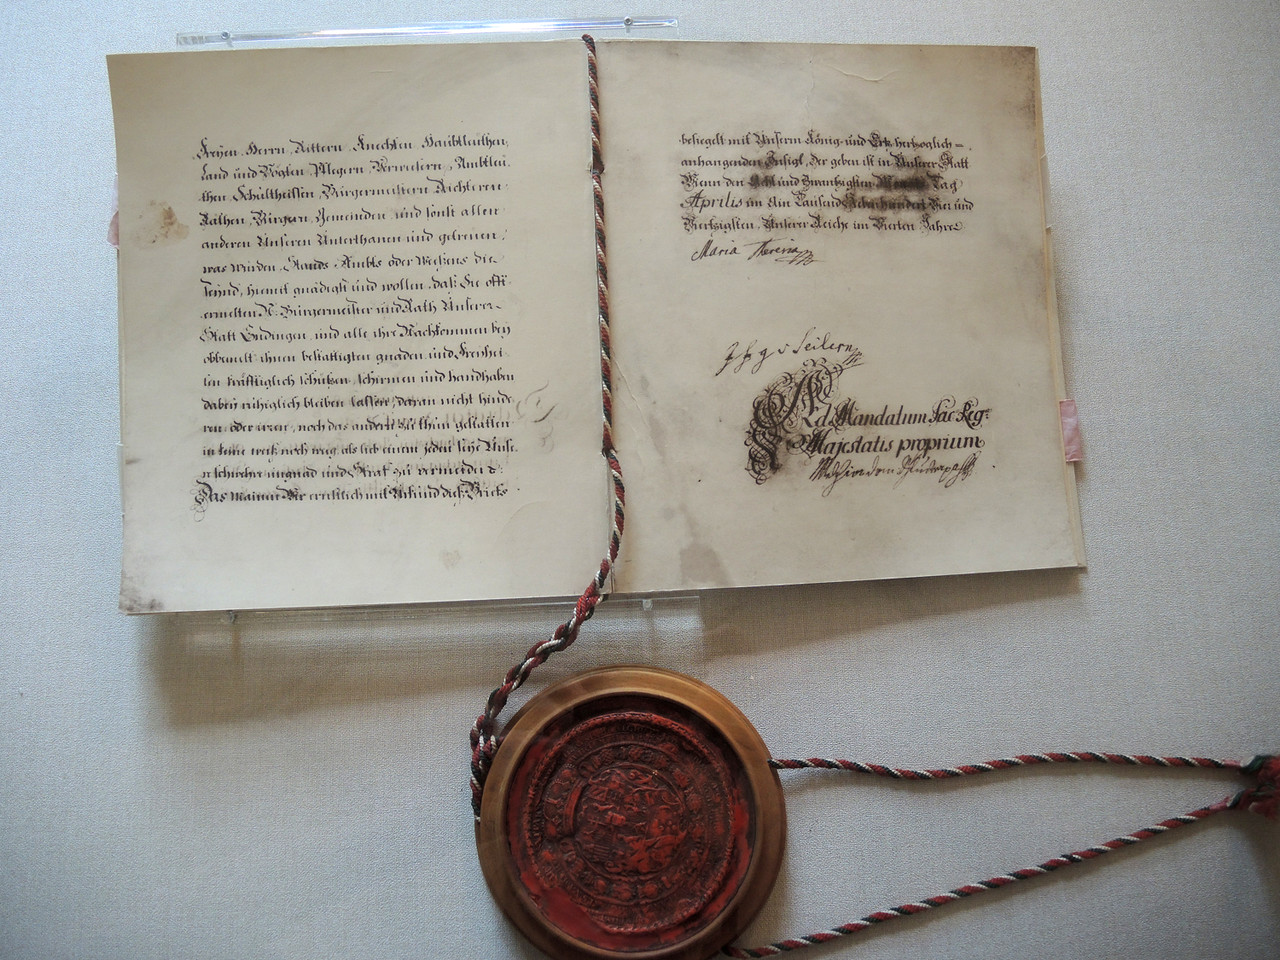 Freyen Herrn, Rittern, Knechten, Haubtleuthen,
Land und Vögten, Pflegern, Verwesern, Ambtleü
then, Schultheissen, Bürgermeistern, Richteren,
Räthen, Bürgern, Gemeinden, und sonst allen
anderen Unseren Unterthanen und getreuen,
was würden, Stands, Ambts oder Weesens die
seynd, hiemit gnädigst und wollen, daß Sie offt
ermelten N: Bürgermeister und Rath Unserer
Statt Endingen, und alle ihre Nachkommen bey
obbemelt ihnen bestättigten gnaden und Freyhei
ten kräfftiglich schützen, schirmen und handhaben
dabey rühiglich bleiben lassen, daran nicht hinde
ren oder irren, noch das andern zu thun gestatten
in keine weiß noch weeg, als lieb einem jeden seye Unse
re schwehre ungnad und Straf zu vermeiden:
Das mainen Wir ernstlich mit Urkund diß Briefs
besiegelt mit Unserm König- und Ertzherzoglich=
anhangenden Insigl, der geben ist in Unserer Statt
Wienn den Acht und Zwantzigsten Tag
Aprilis im Ain Tausend Sibenhundert Vier und
Viertzigsten, Unserer Reiche im Vierten Jahre
Maria Theresia
Seilern
Ad Mandatum Sac: Reg:
Majestatis proprium